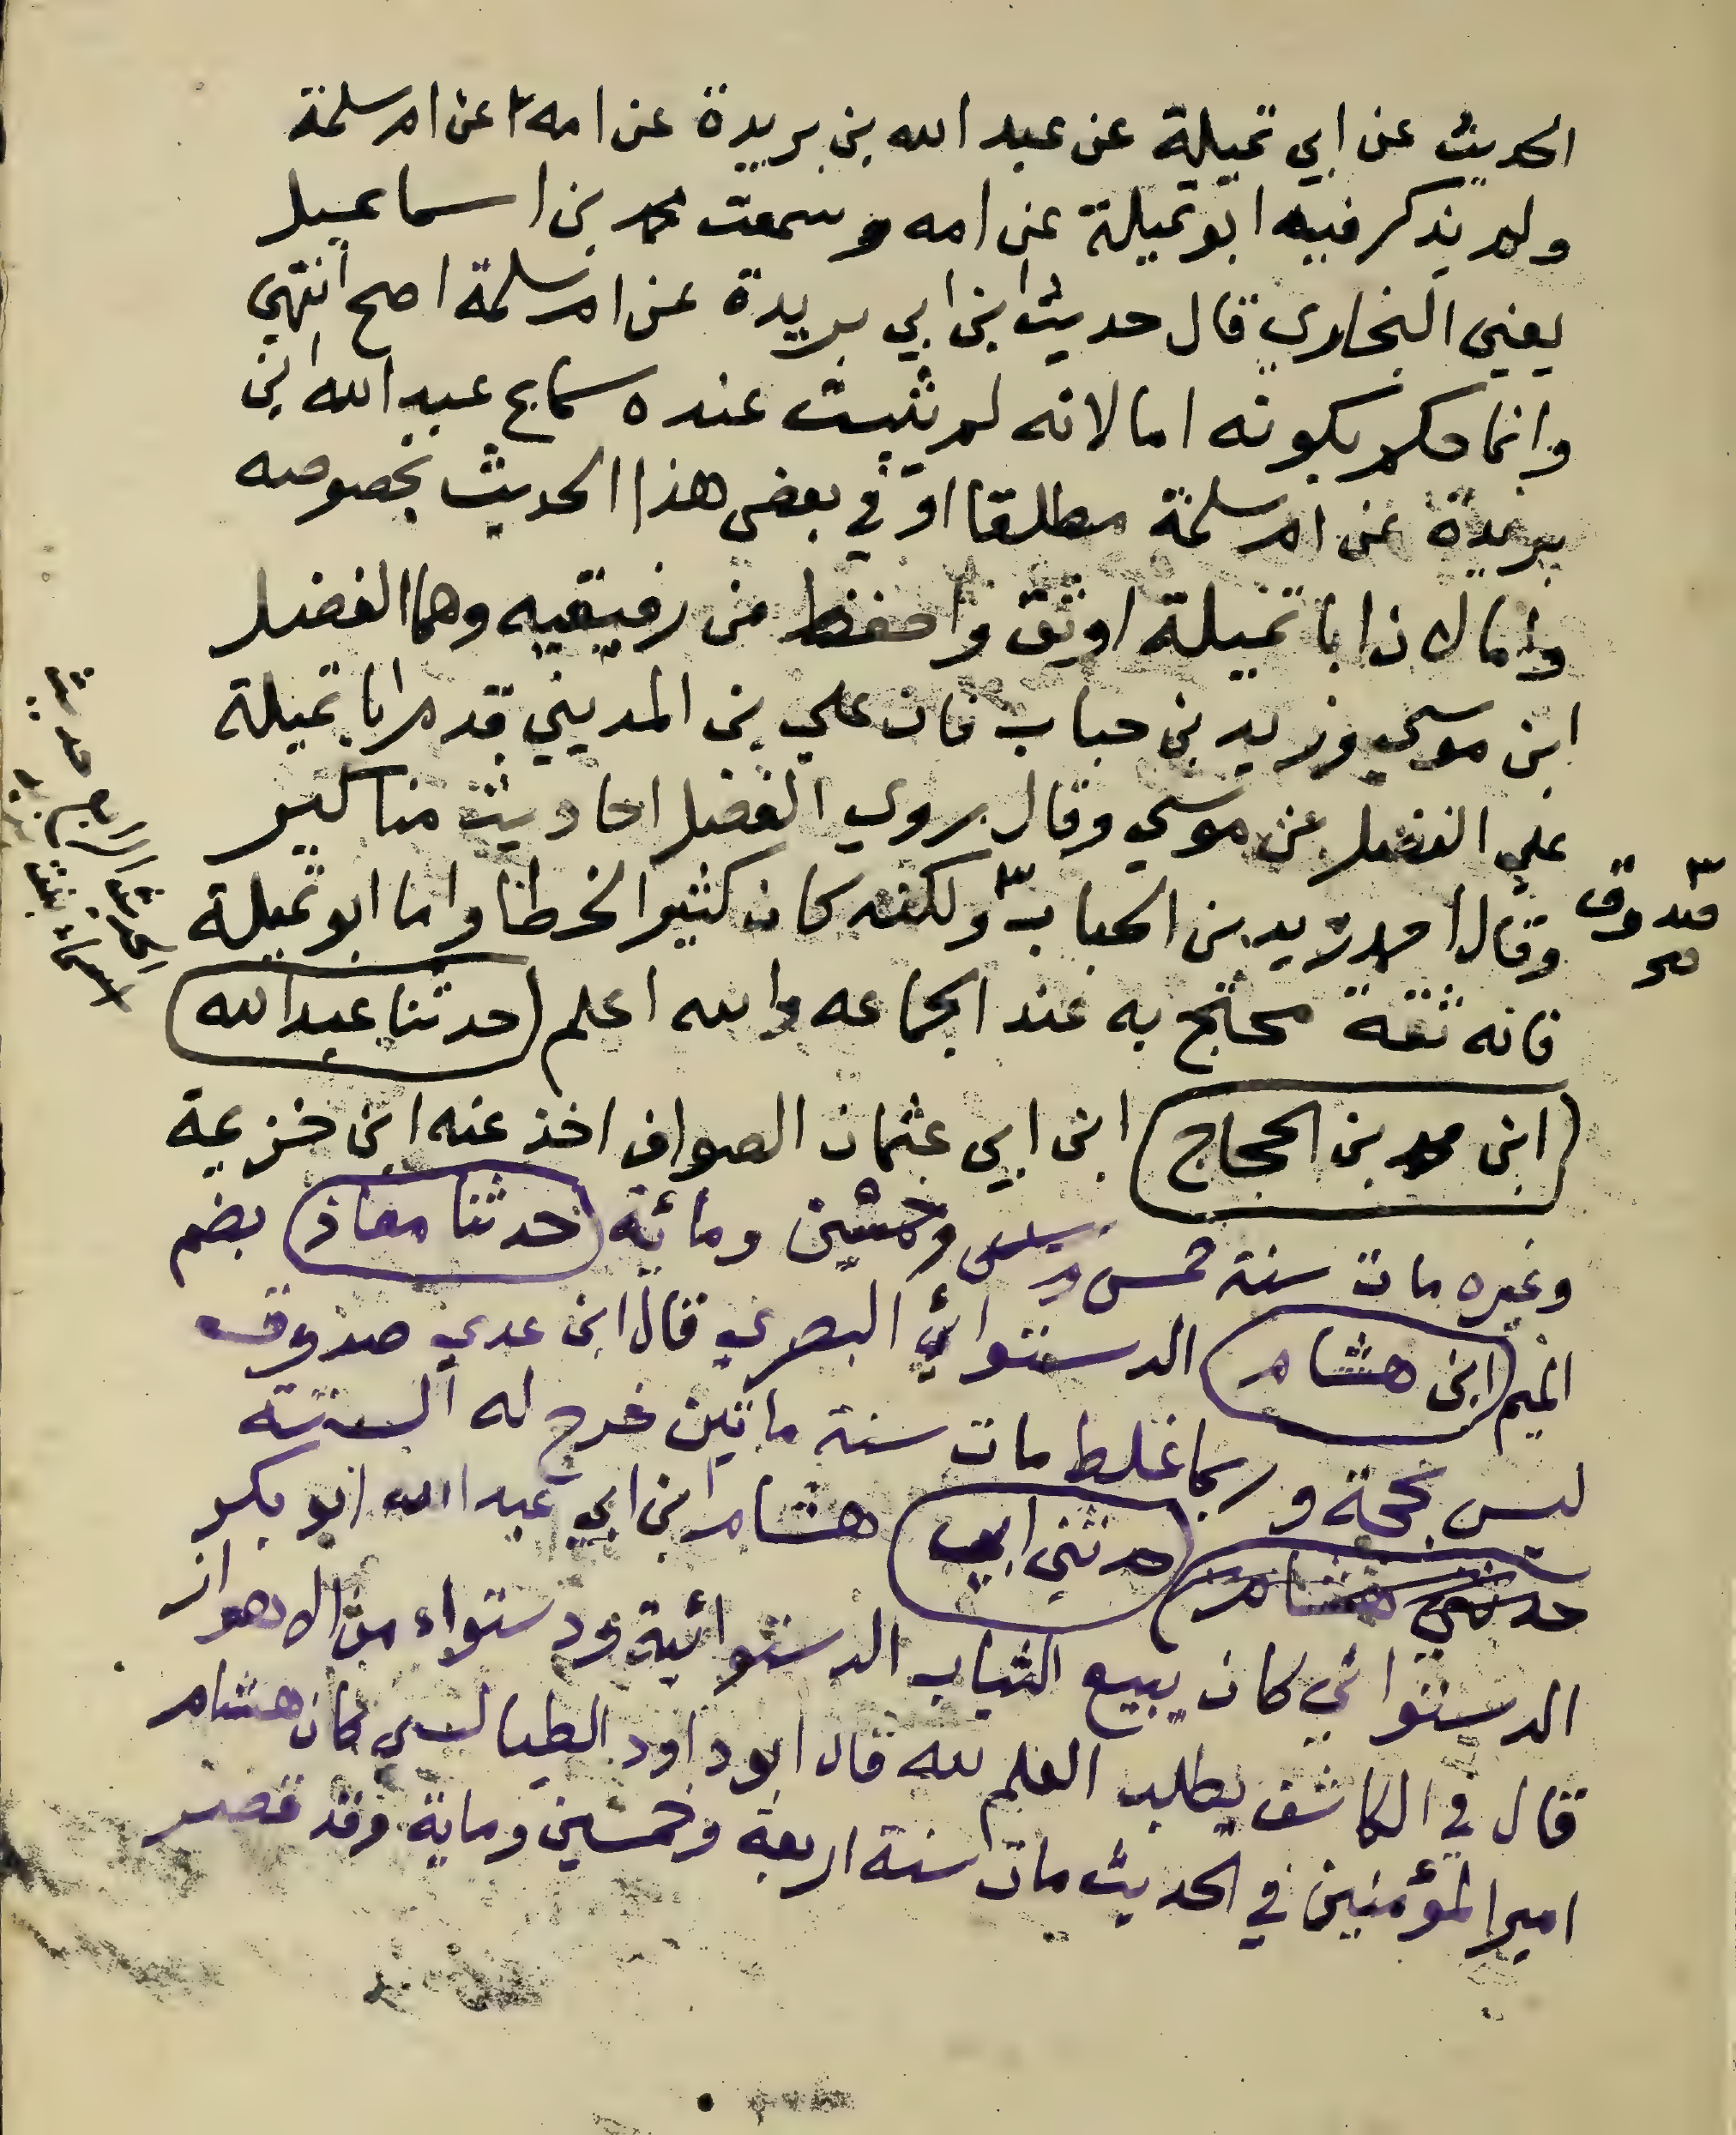 الحديث عن ابي تميلة عن عبد الله بن بريدة عن امه عن ام سلمة
ولم يذكر فيه ابو تميلة عن امه وسمعت محمد بن اسماعيل
يعني البخاري قال حديث ابن ابي بريدة عن ام سلمة اصح انتهى
وانما حكم بكونه اما لانه لم يثبت عنده سماع عبد الله ابن
بريدة عن ام سلمة مطلقا او في بعض هذا الحديث بخصوصه
واما لان ابا تميلة اوثق واحفظ من رفيقيه وهما الفضل
ابن موسي وزيد بن حباب فان علي بن المديني قدم ابا تميلة
علي الفضل بن موسي وقال روي الفضل احاديث مناكير
وقال احمد زيد بن الحباب ولكنه كان كثير الخطا واما ابو تميلة
صدوق
صح
فانه ثقة محتج به عند الجماعه والله اعلم (حدثنا عبد الله
ابن محمد بن الحجاج) ابن ابي عثمان الصواف اخذ عنه ابن خزيمة
وغيره مات سنة خمس وخمسين ومائة (حدثنا معاذ) بضم
الميم (ابن هشام) الدستوائي البصري قال ابن عدي صدوق
ليس بحجة وربما غلط مات سنة ماتين خرج له الستة
حدثني هشام (حدثني ابي) هشام ابن ابي عبد الله ابو بكر
الدستوائي كان يبيع الثياب الدستوائية ودستواء من الاهواز
قال في الكاشف يطلب العلم لله قال ابو داود الطيالسي كان هشام
امير المؤمنين في الحديث مات سنة اربعة وخمسين وماية وقد قصر
حديث
الحديث الرابع
اسماء بنت